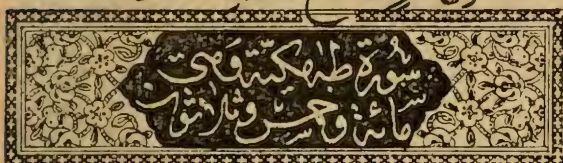 سُورَةُ طٰهٰ مَكِّيَّة وَهِيَ
مِائَة وَخَمْس وَثَلَاثُونَ